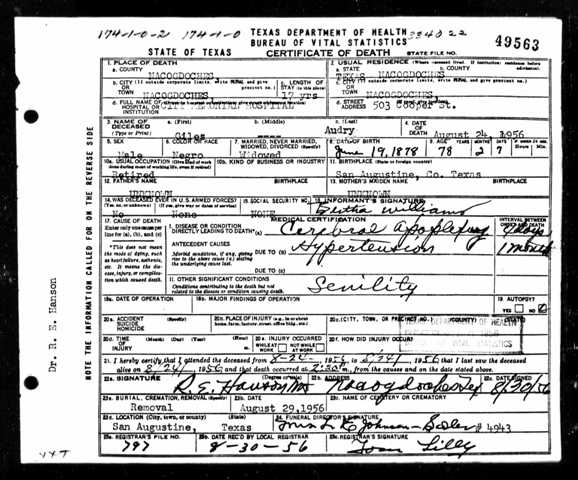 174-1-0-2 174-1-0 TEXAS DEPARTMENT OF HEALTH
BUREAU OF VITAL STATISTICS
STATE OF TEXAS CERTIFICATE OF DEATH STATE FILE NO. 49563
1. PLACE OF DEATH 2. USUAL RESIDENCE (Where deceased lived. If institution: residence before admission)
a. COUNTY a. STATE b. COUNTY
NACOGDOCHES TEXAS NACOGDOCHES
b. CITY (If outside corporate limits, write RURAL and give precinct no.) c. LENGTH OF STAY (in this place) c. CITY (If outside corporate limits, write RURAL and give precinct no.)
OR TOWN NACOGDOCHES 17 yrs OR TOWN NACOGDOCHES
d. FULL NAME OF HOSPITAL OR INSTITUTION CITY MEMORIAL HOSPITAL d. STREET ADDRESS 503 Cooper St.
3. NAME OF DECEASED (Type or Print) a. (First) b. (Middle) c. (Last) 4. DATE OF DEATH
Giles ---- Audry August 24, 1956
5. SEX 6. COLOR OR RACE 7. MARRIED, NEVER MARRIED, WIDOWED, DIVORCED (Specify) 8. DATE OF BIRTH
Male Negro Widowed June 19, 1878 78 2 7
10a. USUAL OCCUPATION 10b. KIND OF BUSINESS OR INDUSTRY 11. BIRTHPLACE
Retired San Augustine, Co. Texas
12. FATHER'S NAME 13. MOTHER'S MAIDEN NAME
UNKNOWN UNKNOWN
14. WAS DECEASED EVER IN U.S. ARMED FORCES? 15. SOCIAL SECURITY NO. 16. INFORMANT'S SIGNATURE
No None NONE Bertha Williams
17. CAUSE OF DEATH MEDICAL CERTIFICATION INTERVAL BETWEEN ONSET AND DEATH
Enter only one cause per line for (a), (b), and (c) I. DISEASE OR CONDITION DIRECTLY LEADING TO DEATH (a) Cerebral Apoplexy days
*This does not mean the mode of dying, such as heart failure, asthenia, etc. It means the disease, injury, or complication which caused death.
ANTECEDENT CAUSES DUE TO (b) Hypertension
Morbid conditions, if any, giving rise to the above cause (a) stating the underlying cause last. DUE TO (c)
II. OTHER SIGNIFICANT CONDITIONS
Conditions contributing to the death but not related to the disease or condition causing death. Senility
18a. DATE OF OPERATION 18b. MAJOR FINDINGS OF OPERATION 19. AUTOPSY?
YES NO
20a. ACCIDENT SUICIDE HOMICIDE (Specify) 20b. PLACE OF INJURY 20c. (CITY, TOWN, OR PRECINCT NO.) (COUNTY) (STATE)
20d. TIME OF INJURY (Month) (Day) (Year) (Hour) 20e. INJURY OCCURRED WHILE AT WORK NOT WHILE AT WORK 20f. HOW DID INJURY OCCUR?
21. I hereby certify that I attended the deceased from 8-24- 1956 to 8/24/ 1956 that I last saw the deceased
alive on 8/24/ 1956 and that death occurred at 2:30 m., from the causes and on the date stated above.
22a. SIGNATURE (Degree or title) 22b. ADDRESS 22c. DATE SIGNED
R. E. Hanson MD Nacogdoches Tex 8/30/56
23a. BURIAL, CREMATION, REMOVAL (Specify) 23b. DATE 23c. NAME OF CEMETERY OR CREMATORY
Removal August 29, 1956
23d. LOCATION (City, town, or county) (State) 24. FUNERAL DIRECTOR'S SIGNATURE
San Augustine, Texas Johnson # 4943
25a. REGISTRAR'S FILE NO. 25b. DATE REC'D BY LOCAL REGISTRAR 25c. REGISTRAR'S SIGNATURE
797 8-30-56 Tom Lilly
Dr. R. E. Hanson
NOTE THE INFORMATION CALLED FOR ON THE REVERSE SIDE